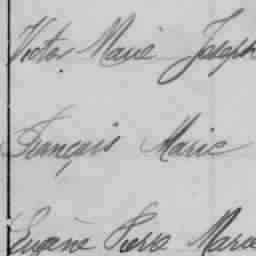 Victor Marie Joseph
François Marie
Eugène Pierre Marie